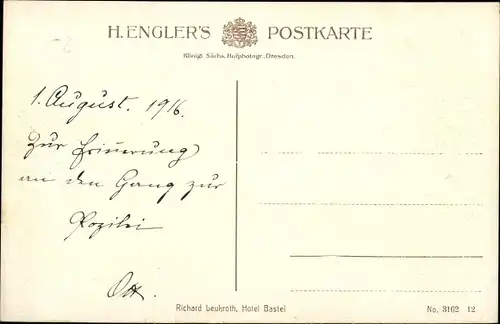 H. ENGLER'S POSTKARTE
Königl. Sächs. Hofphotogr., Dresden.
1. August. 1916.
Zur Erinnerung
an den Gang zur
Ott.
Richard Leukroth, Hotel Bastei
No. 3162 12